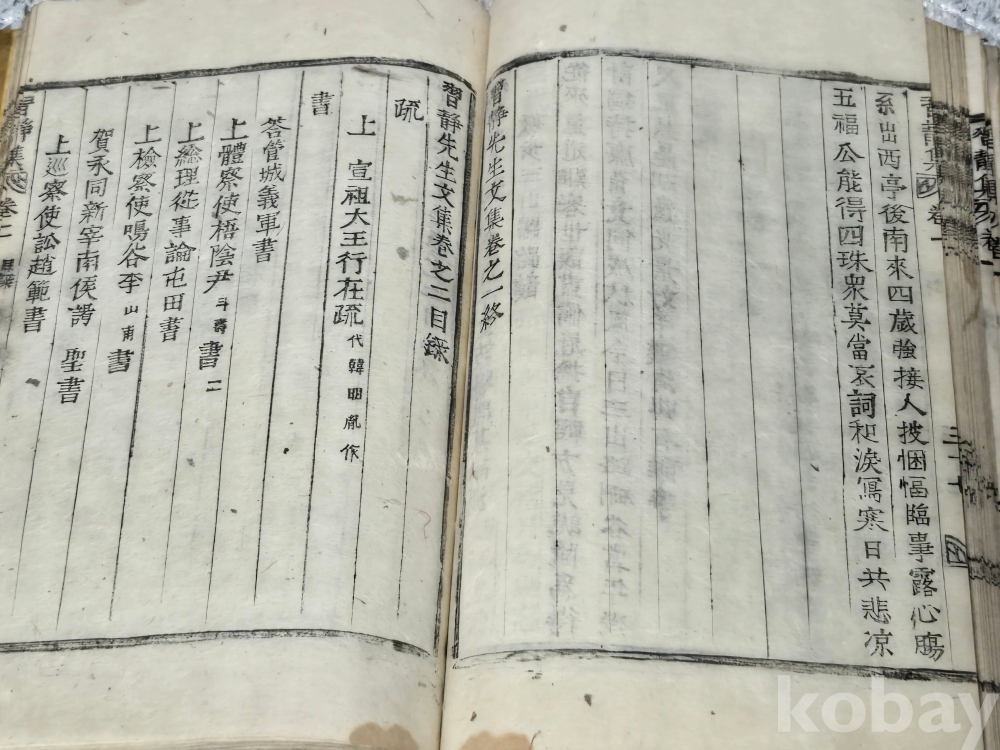 西亭後南來四歲強接人披悃愊臨事露心膓
五福公能得四珠衆莫當哀詞和淚寫寒日共悲凉
習靜先生文集卷之一終
習靜先生文集卷之二目錄
疏
上 宣祖大王行在疏代韓胤作
書
答管城義軍書
上體察使梧陰尹斗壽書二
上總理從事論屯田書
上檢察使鳴谷李山甫書
賀永同新宰南侯書
上巡察使訟趙範書
kobay